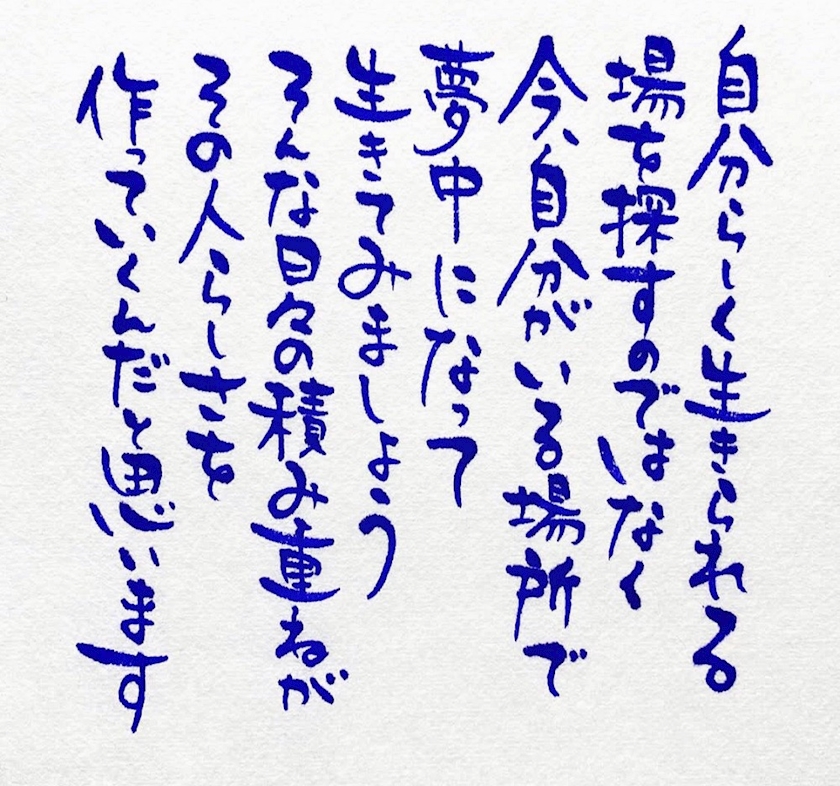 自分らしく生きられる
場を探すのではなく
今、自分がいる場所で
夢中になって
生きてみましょう
そんな日々の積み重ねが
その人らしさを
作っていくんだと思います